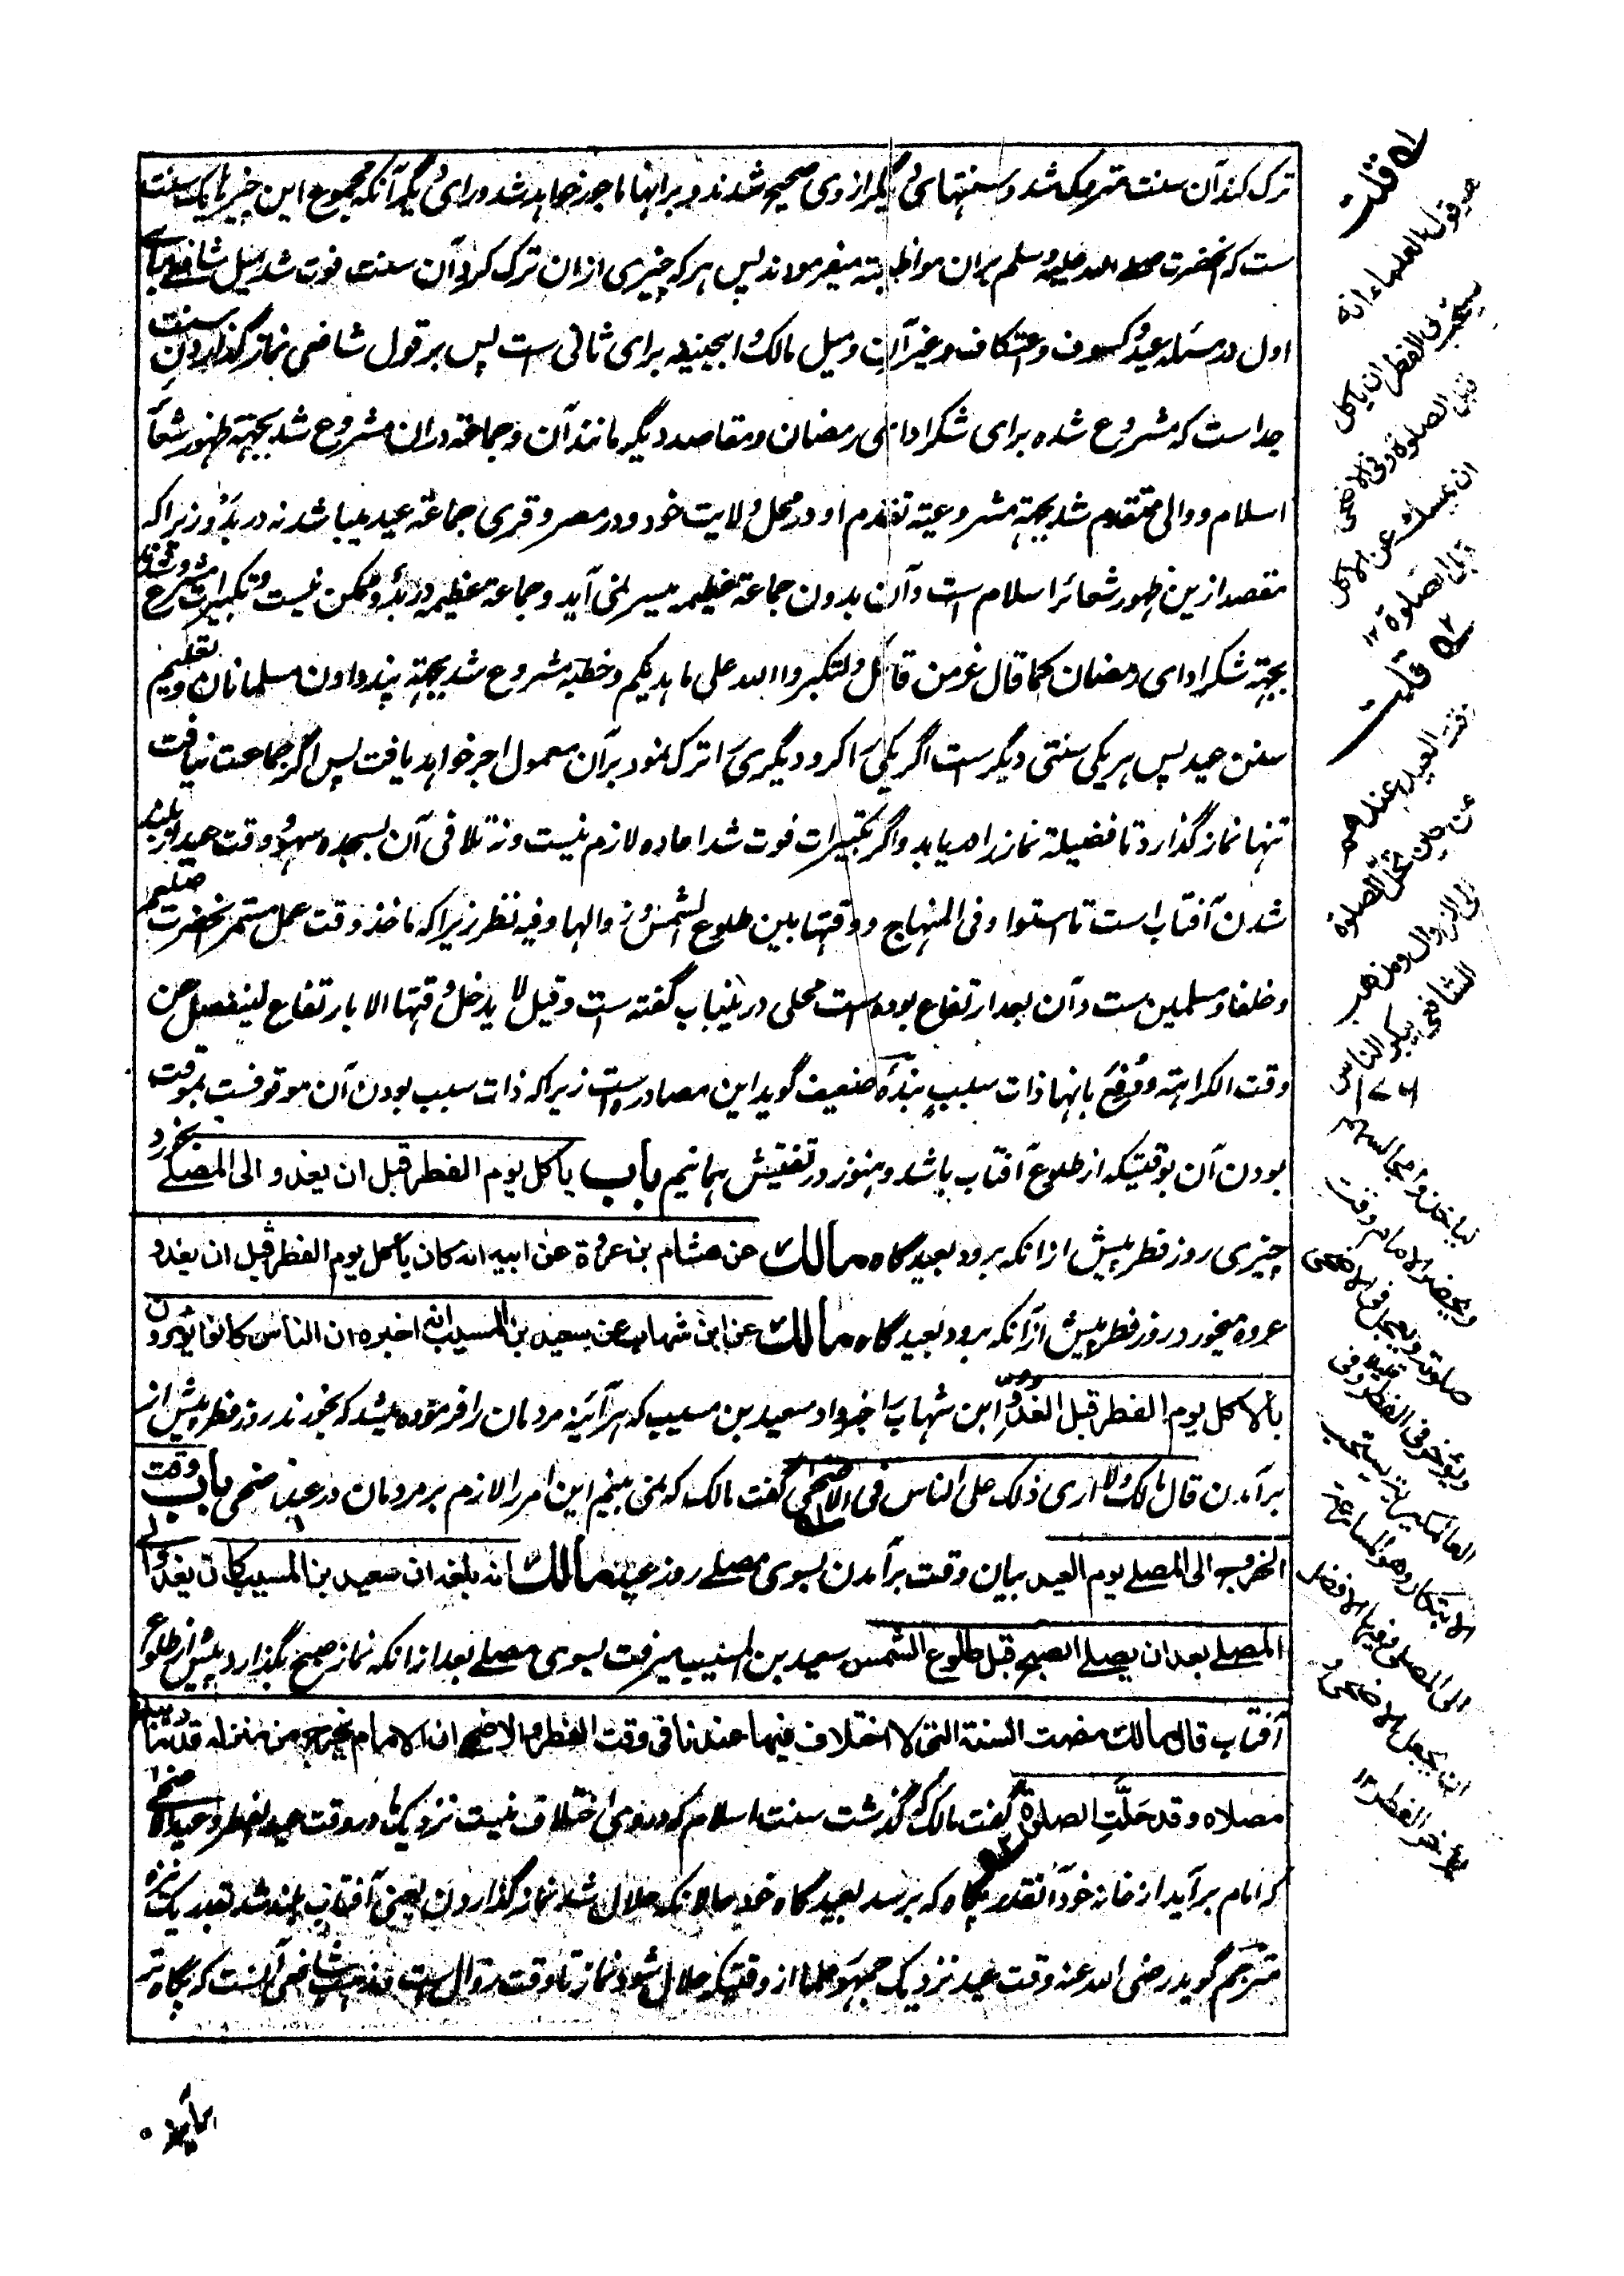 ترک کند آن سنت متروک شد و سنتهای دیگر از وی صحیح شدند و برانها ماجور خواهد شد و رای دیگر آنکه مجموع این چیز یک سنت
ست که آنحضرت صلی الله علیه و سلم بران مواظبته میفرمودند پس هر که چیزی ازان ترک کرد آن سنت فوت شد میل شافعی برای
اول در مسئله عید و کسوف و اعتکاف و غیر آن و میل مالک و ابیحنیفه برای ثانی است پس بر قول شافعی نماز گذاردن سنت
جداست که مشروع شده برای شکر ادای رمضان و مقاصد دیگر مانند آن و جماعة دران مشروع شد بجهته ظهور شعائر
اسلام و والی متقدم شد بجهته مشروعیته تقدم او در محل ولایت خود و در مصر و قری جماعة عید میباشد نه در بدو زیرا که
مقصد ازین ظهور شعائر اسلام است و آن بدون جماعة عظیمه میسر نمی آید و جماعة عظیمه در بدو ممکن نیست و تکبیرات مشروع شدند
بجهته شکر ادای رمضان کما قال عز من قائل و لتکبروا الله علی ما هدیکم و خطبه مشروع شد بجهته پند دادن مسلمانان و تعلیم
سنن عید پس هر یکی سنتی دیگرست اگر یکی را کرد و دیگری را ترک نمود بر آن معمول اجر خواهد یافت پس اگر جماعت نیافت
تنها نماز گذارد تا فضیلة نماز را دریابد و اگر تکبیرات فوت شد اعاده لازم نیست و نه تلافی آن بسجده سهو و وقت عید از بلند
شدن آفتاب است تا استوا و فی المنهاج و وقتها بین طلوع الشمس و زوالها و فیه نظر زیرا که ماخذ وقت عمل مستمر آنحضرت صلعم
و خلفا و مسلمین ست و آن بعد ارتفاع بوده است محلی درینباب گفته ست و قیل لا یدخل وقتها الا بارتفاع لینفصل عن
وقت الکراهته و دفع بانها ذات سبب بنده ضعیف گوید این مصادره ست زیرا که ذات سبب بودن آن موقوفست بموقت
بودن آن بوقتیکه از طلوع آفتاب باشد و هنوز در تفتیش همانیم باب یاکل یوم الفطر قبل ان یغدو الی المصلی بخورد
چیزی روز فطر پیش ازانکه برود بعیدگاه مالک عن هشام بن عروة عن ابیه انه کان یاکل یوم الفطر قبل ان یغدو
عروه میخورد در روز فطر پیش ازآنکه برود بعیدگاه مالک عن ابن شهاب عن سعید بن المسیب انه اخبره ان الناس کانوا یؤمرون
بالاکل یوم الفطر قبل الغدو ابن شهاب را خبر داد سعید بن مسیب که هر آئینه مردمان را فرموده میشد که بخورند روز فطر پیش از
برآمدن قال مالک ولا اری ذلک علی الناس فی الاضحی گفت مالک که نمی بینم این امر را لازم بر مردمان در عید اضحی باب وقت
الخروج الی المصلی یوم العید بیان وقت برآمدن بسوی مصلی روز عید مالک انه بلغه ان سعید بن المسیب کان یغدو الی
المصلی بعد ان یصلی الصبح قبل طلوع الشمس سعید بن المسیب میرفت بسوی مصلی بعد ازانکه نماز صبح بگذارد پیش از طلوع
آفتاب قال مالک مضت السنة التی لا اختلاف فیها عندنا فی وقت الفطر و الاضحی ان الامام یخرج من منزله قدر ما یبلغ
مصلاه و قد حلت الصلوة گفت مالک گذشت سنت اسلام که در وی اختلاف نیست نزدیک ما در وقت عید الفطر و عید الاضحی
که امام برآید از خانه خود آنقدر پگاه که برسد بعیدگاه خود حالانکه حلال شد نماز گذاردن یعنی آفتاب بلند شد بقدر یک نیزه
مترجم گوید رضی الله عنه وقت عید نزدیک جمهور علما از وقتیکه حلال شود نماز تا وقت زوال ست و مذهب شافعی آنست که پگاه تر
قلت
هو قول العلماء انه
یستحب فی الفطر ان یاکل
قبل الصلوة و فی الاضحی
ان یمسک عن الاکل
قبل الصلوة ١٢
قلت
وقت العید عندهم
من حین تحل الصلوة
الی الزوال و مذهب
الشافعی یبکر الناس
و یحضر الامام وقت
صلوته و یعجل فی الاضحی
و یؤخر فی الفطر و فی
العالمگیریة یستحب
الابتکار و هو المسارعة
الی المصلی و فیها الافضل
ان یعجل الاضحی و
یؤخر الفطر ١٢